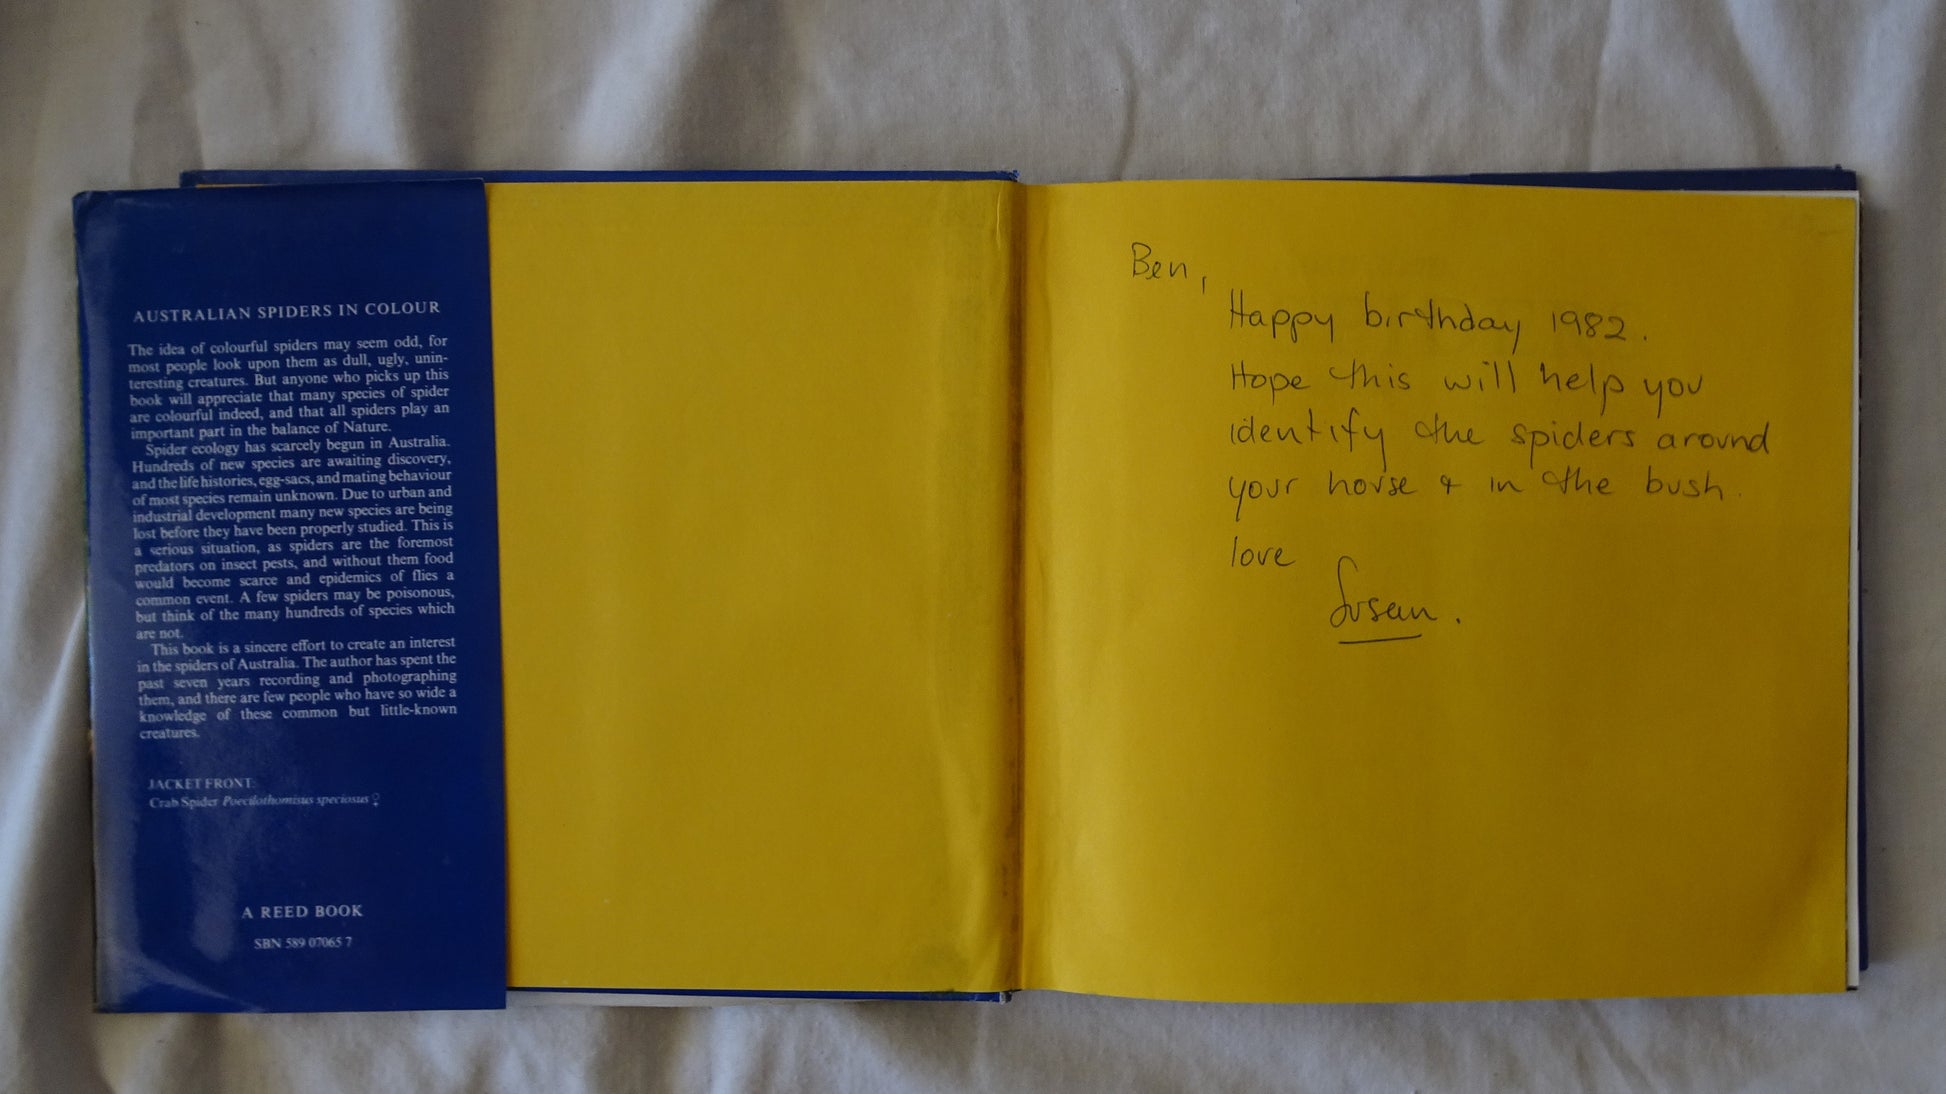 AUSTRALIAN SPIDERS IN COLOUR
The idea of colourful spiders may seem odd, for
most people look upon them as dull, ugly, unin-
teresting creatures. But anyone who picks up this
book will appreciate that many species of spider
are colourful indeed, and that all spiders play an
important part in the balance of Nature.
Spider ecology has scarcely begun in Australia.
Hundreds of new species are awaiting discovery,
and the life histories, egg-sacs, and mating behaviour
of most species remain unknown. Due to urban and
industrial development many new species are being
lost before they have been properly studied. This is
a serious situation, as spiders are the foremost
predators on insect pests, and without them food
would become scarce and epidemics of flies a
common event. A few spiders may be poisonous,
but think of the many hundreds of species which
are not.
This book is a sincere effort to create an interest
in the spiders of Australia. The author has spent the
past seven years recording and photographing
them, and there are few people who have so wide a
knowledge of these common but little-known
creatures.
JACKET FRONT:
Crab Spider Poecilothomisus speciosus ♀
A REED BOOK
SBN 589 07065 7
Ben,
Happy birthday 1982.
Hope this will help you
identify the spiders around
your house & in the bush.
love
Susan.